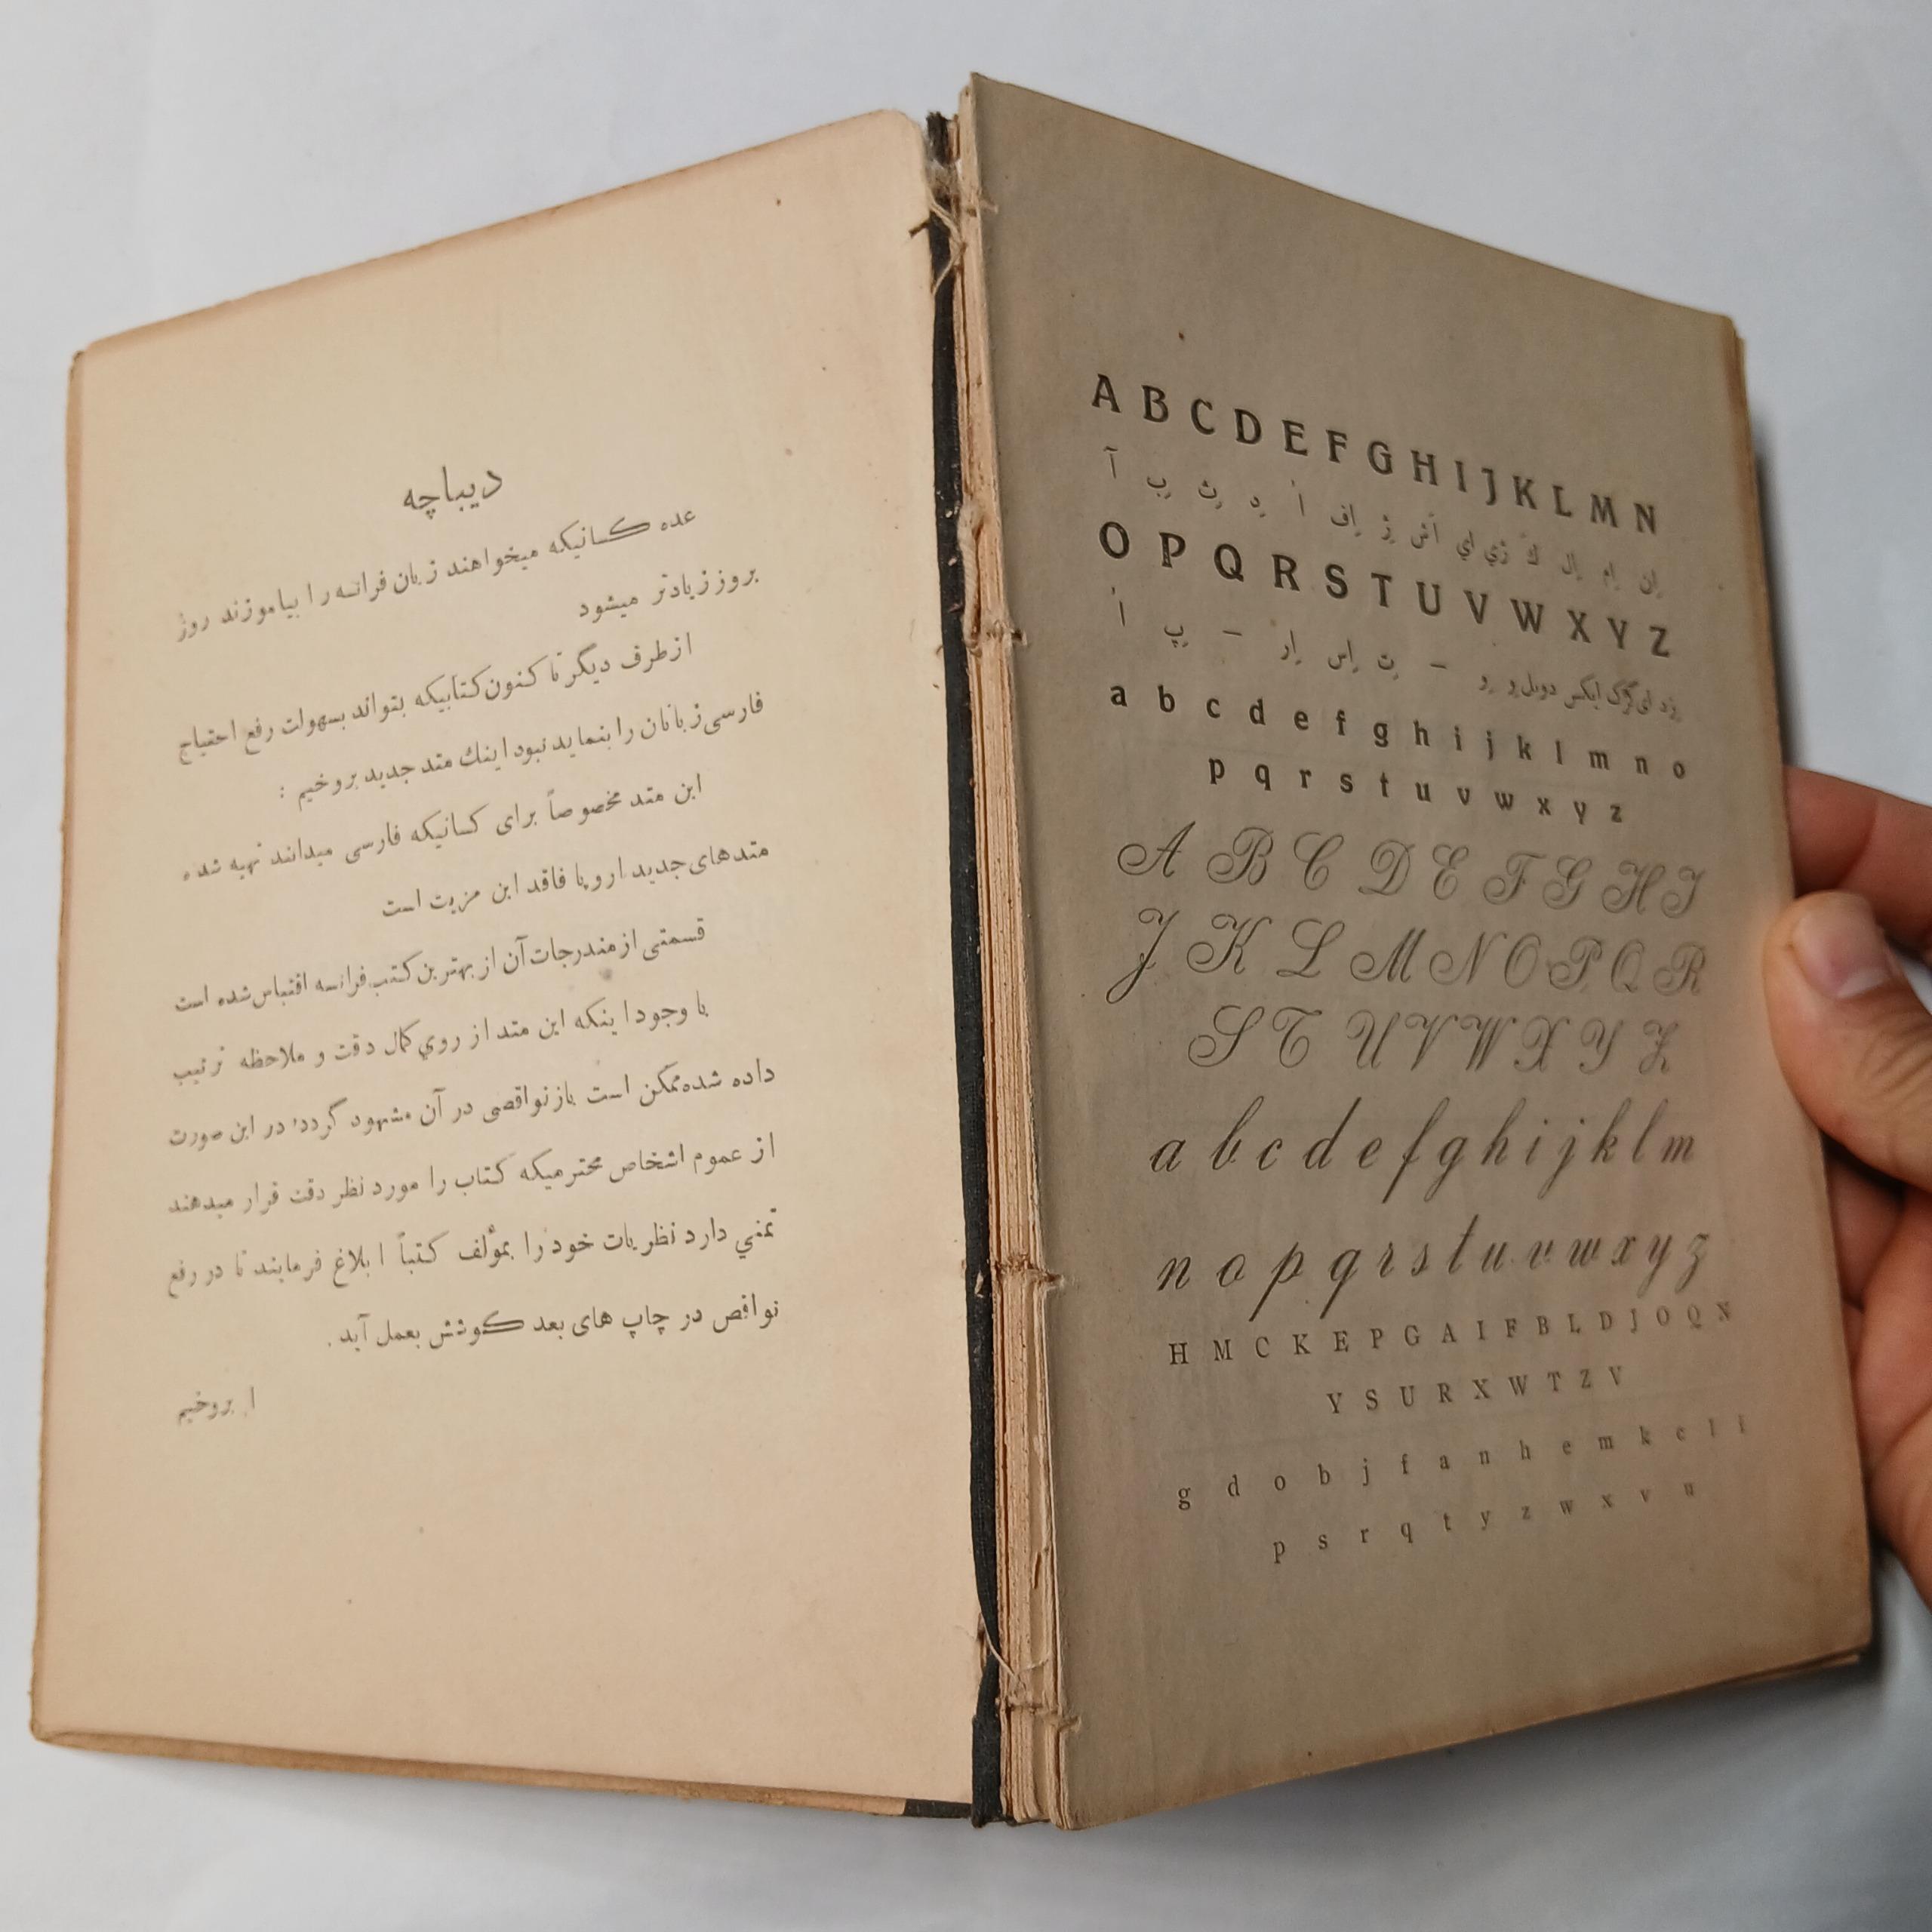 دیباچه
عده کسانیکه میخواهند زبان فرانسه را بیاموزند روز
بروز زیادتر میشود
از طرف دیگر تا کنون کتابیکه بتواند بسهولت رفع احتیاج
فارسی زبانان را بنماید نبود اینك متد جدید بروخیم :
این متد مخصوصاً برای کسانیکه فارسی میدانند تهیه شده
متدهای جدید اروپا فاقد این مزیت است
قسمتی از مندرجات آن از بهترین کتب فرانسه اقتباس شده است
با وجود اینکه این متد از روي کمال دقت و ملاحظه ترتیب
داده شده ممکن است باز نواقصی در آن مشهود گردد، در این صورت
از عموم اشخاص محترمیکه کتاب را مورد نظر دقت قرار میدهند
تمني دارد نظریات خود را بمؤلف کتباً ابلاغ فرمایند تا در رفع
نواقص در چاپ های بعد کوشش بعمل آید .
ا. بروخیم
A B C D E F G H I J K L M N
آ بِ ثِ دِ اُ اِف ژِ آش اي ژي كَ اِل اِم اِن
O P Q R S T U V W X Y Z
اُ پِ – اِر اِس تِ – وِ دوبل وِ ایکس ای گرک زِد
a b c d e f g h i j k l m n o
p q r s t u v w x y z
A B C D E F G H I
J K L M N O P Q R
S T U V W X Y Z
a b c d e f g h i j k l m
n o p q r s t u v w x y z
H M C K E P G A I F B L D J O Q N
Y S U R X W T Z V
g d o b j f a n h e m k c l i
p s r q t y z w x v u